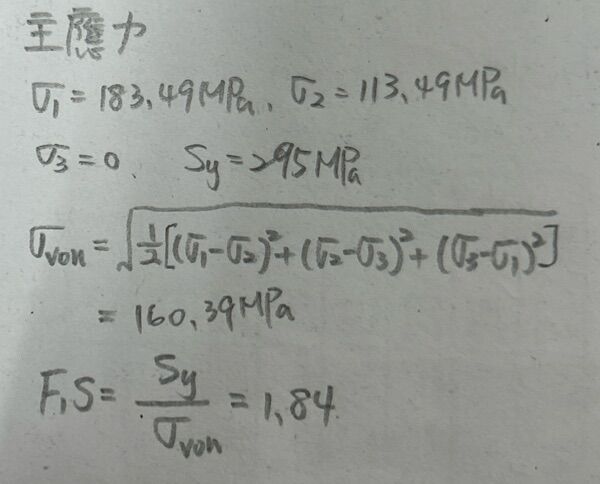 主應力
σ1 = 183.49MPa, σ2 = 113.49MPa
σ3 = 0, Sy = 295MPa
σvon = √(½[(σ1-σ2)²+(σ2-σ3)²+(σ3-σ1)²])
= 160.39MPa
F.S = Sy/σvon = 1.84